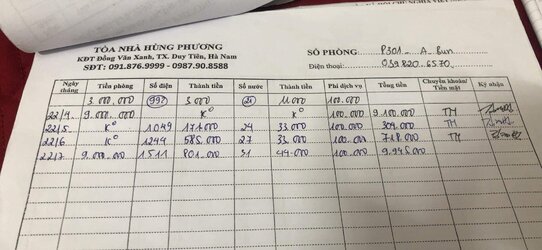 TÒA NHÀ HÙNG PHƯƠNG
KĐT Đồng Văn Xanh, TX. Duy Tiên, Hà Nam
SĐT: 091.876.9999 - 0987.90.8588
SỐ PHÒNG: P301 - A Bun
Điện thoại: 039 820 6570
Ngày tháng Tiền phòng Số điện Thành tiền Số nước Thành tiền Phí dịch vụ Tổng tiền Chuyển khoản/ Tiền mặt Ký nhận
3.000.000 992 3.000 21 11.000 100.000
22/4 9.000.000 K° K° 100.000 9.100.000 TM
22/5 K° 1049 171.000 24 33.000 100.000 304.000 TM
22/6 K° 1244 585.000 27 33.000 100.000 718.000 TM
22/7 9.000.000 1511 801.000 31 44.000 100.000 9.945.000